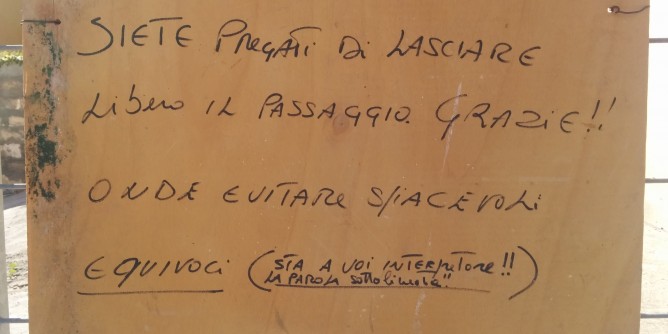 SIETE PREGATI DI LASCIARE
LIBERO IL PASSAGGIO. GRAZIE!!
ONDE EVITARE SPIACEVOLI
EQUIVOCI (STA A VOI INTERPETARE!!
LA PAROLA SOTTOLINEATA!!)